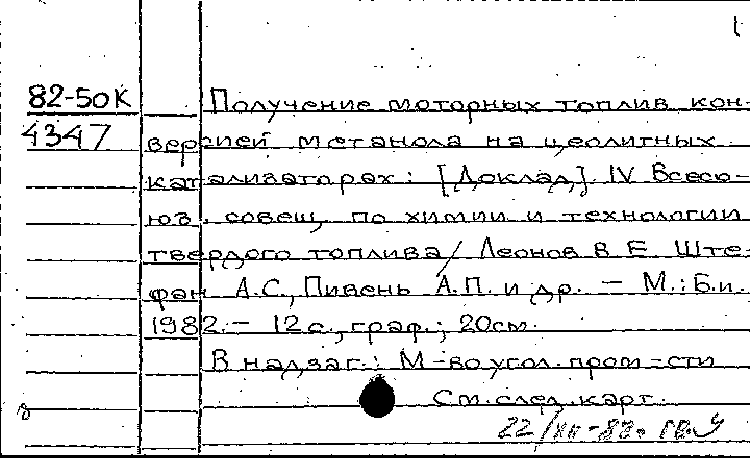 82-50К Получение моторных топлив кон-
4347 версией метанола на цеолитных
катализаторах: [Доклад]. IV Всесо-
юз. совещ. по химии и технологии
твердого топлива / Леонов В. Е. Ште-
фан А.С., Пивень А.П. и др. — М.: Б.и.
1982. — 12 с., граф.; 20см.
В надзаг.: М-во угол. пром-сти
См. след. карт.